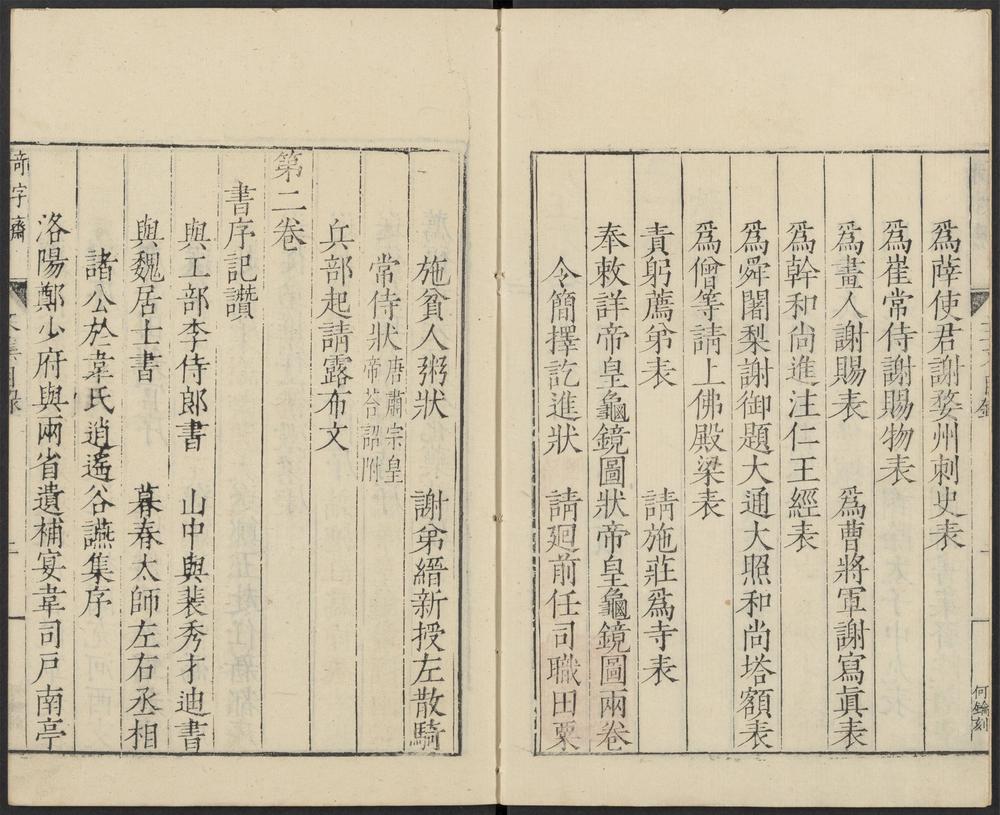 爲薛使君謝婺州刺史表
爲崔常侍謝賜物表
爲畫人謝賜表　爲曹將軍謝寫眞表
爲幹和尚進注仁王經表
爲舜闍梨謝御題大通大照和尚塔額表
爲僧等請上佛殿梁表
責躬薦弟表　請施莊爲寺表
奉敕詳帝皇龜鏡圖狀帝皇龜鏡圖兩卷
令簡擇訖進狀　請廻前任司職田粟
何鑰刻
施貧人粥狀　謝弟縉新授左散騎
常侍狀唐肅宗皇帝荅詔附
兵部起請露布文
第二卷
書序記讚
與工部李侍郎書　山中與裴秀才迪書
與魏居士書　暮春太師左右丞相
諸公於韋氏逍遙谷讌集序
洛陽鄭少府與兩省遺補宴韋司戶南亭
奇字齋